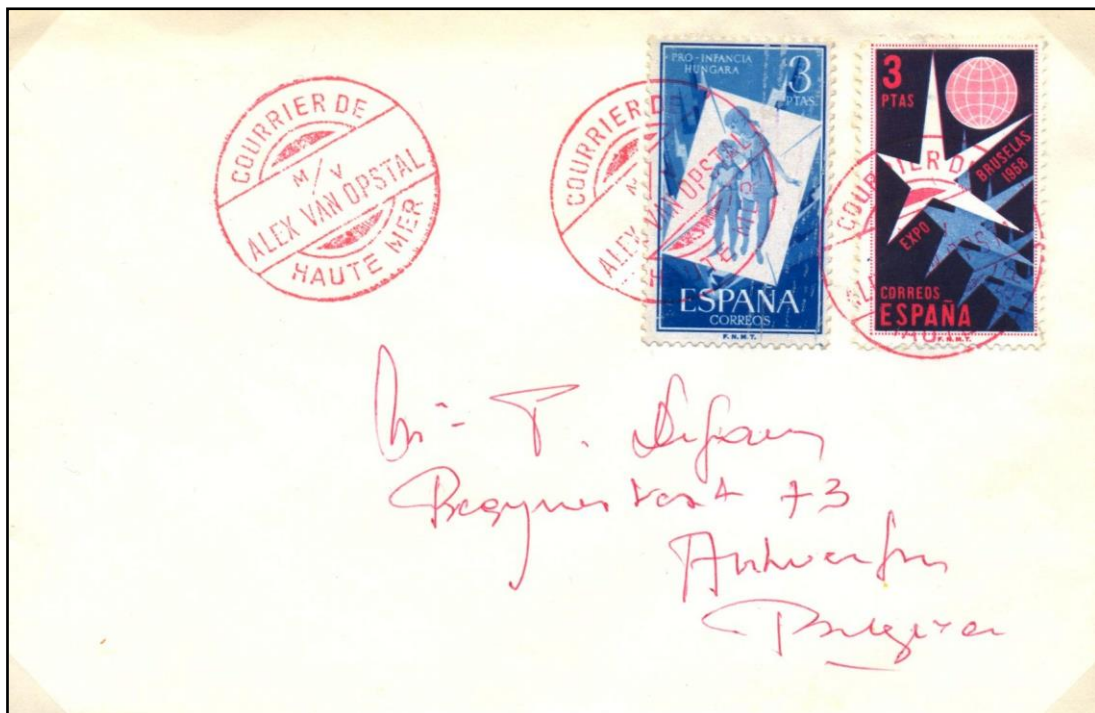 COURRIER DE
M/V
ALEX VAN OPSTAL
HAUTE MER
COURRIER DE
ALEX VAN OPSTAL
PRO-INFANCIA
HUNGARA
3
PTAS
ESPAÑA
CORREOS
F.N.M.T.
3
PTAS
EXPO BRUSELAS
1958
CORREOS
ESPAÑA
F.N.M.T.
T.
73
Antwerpen